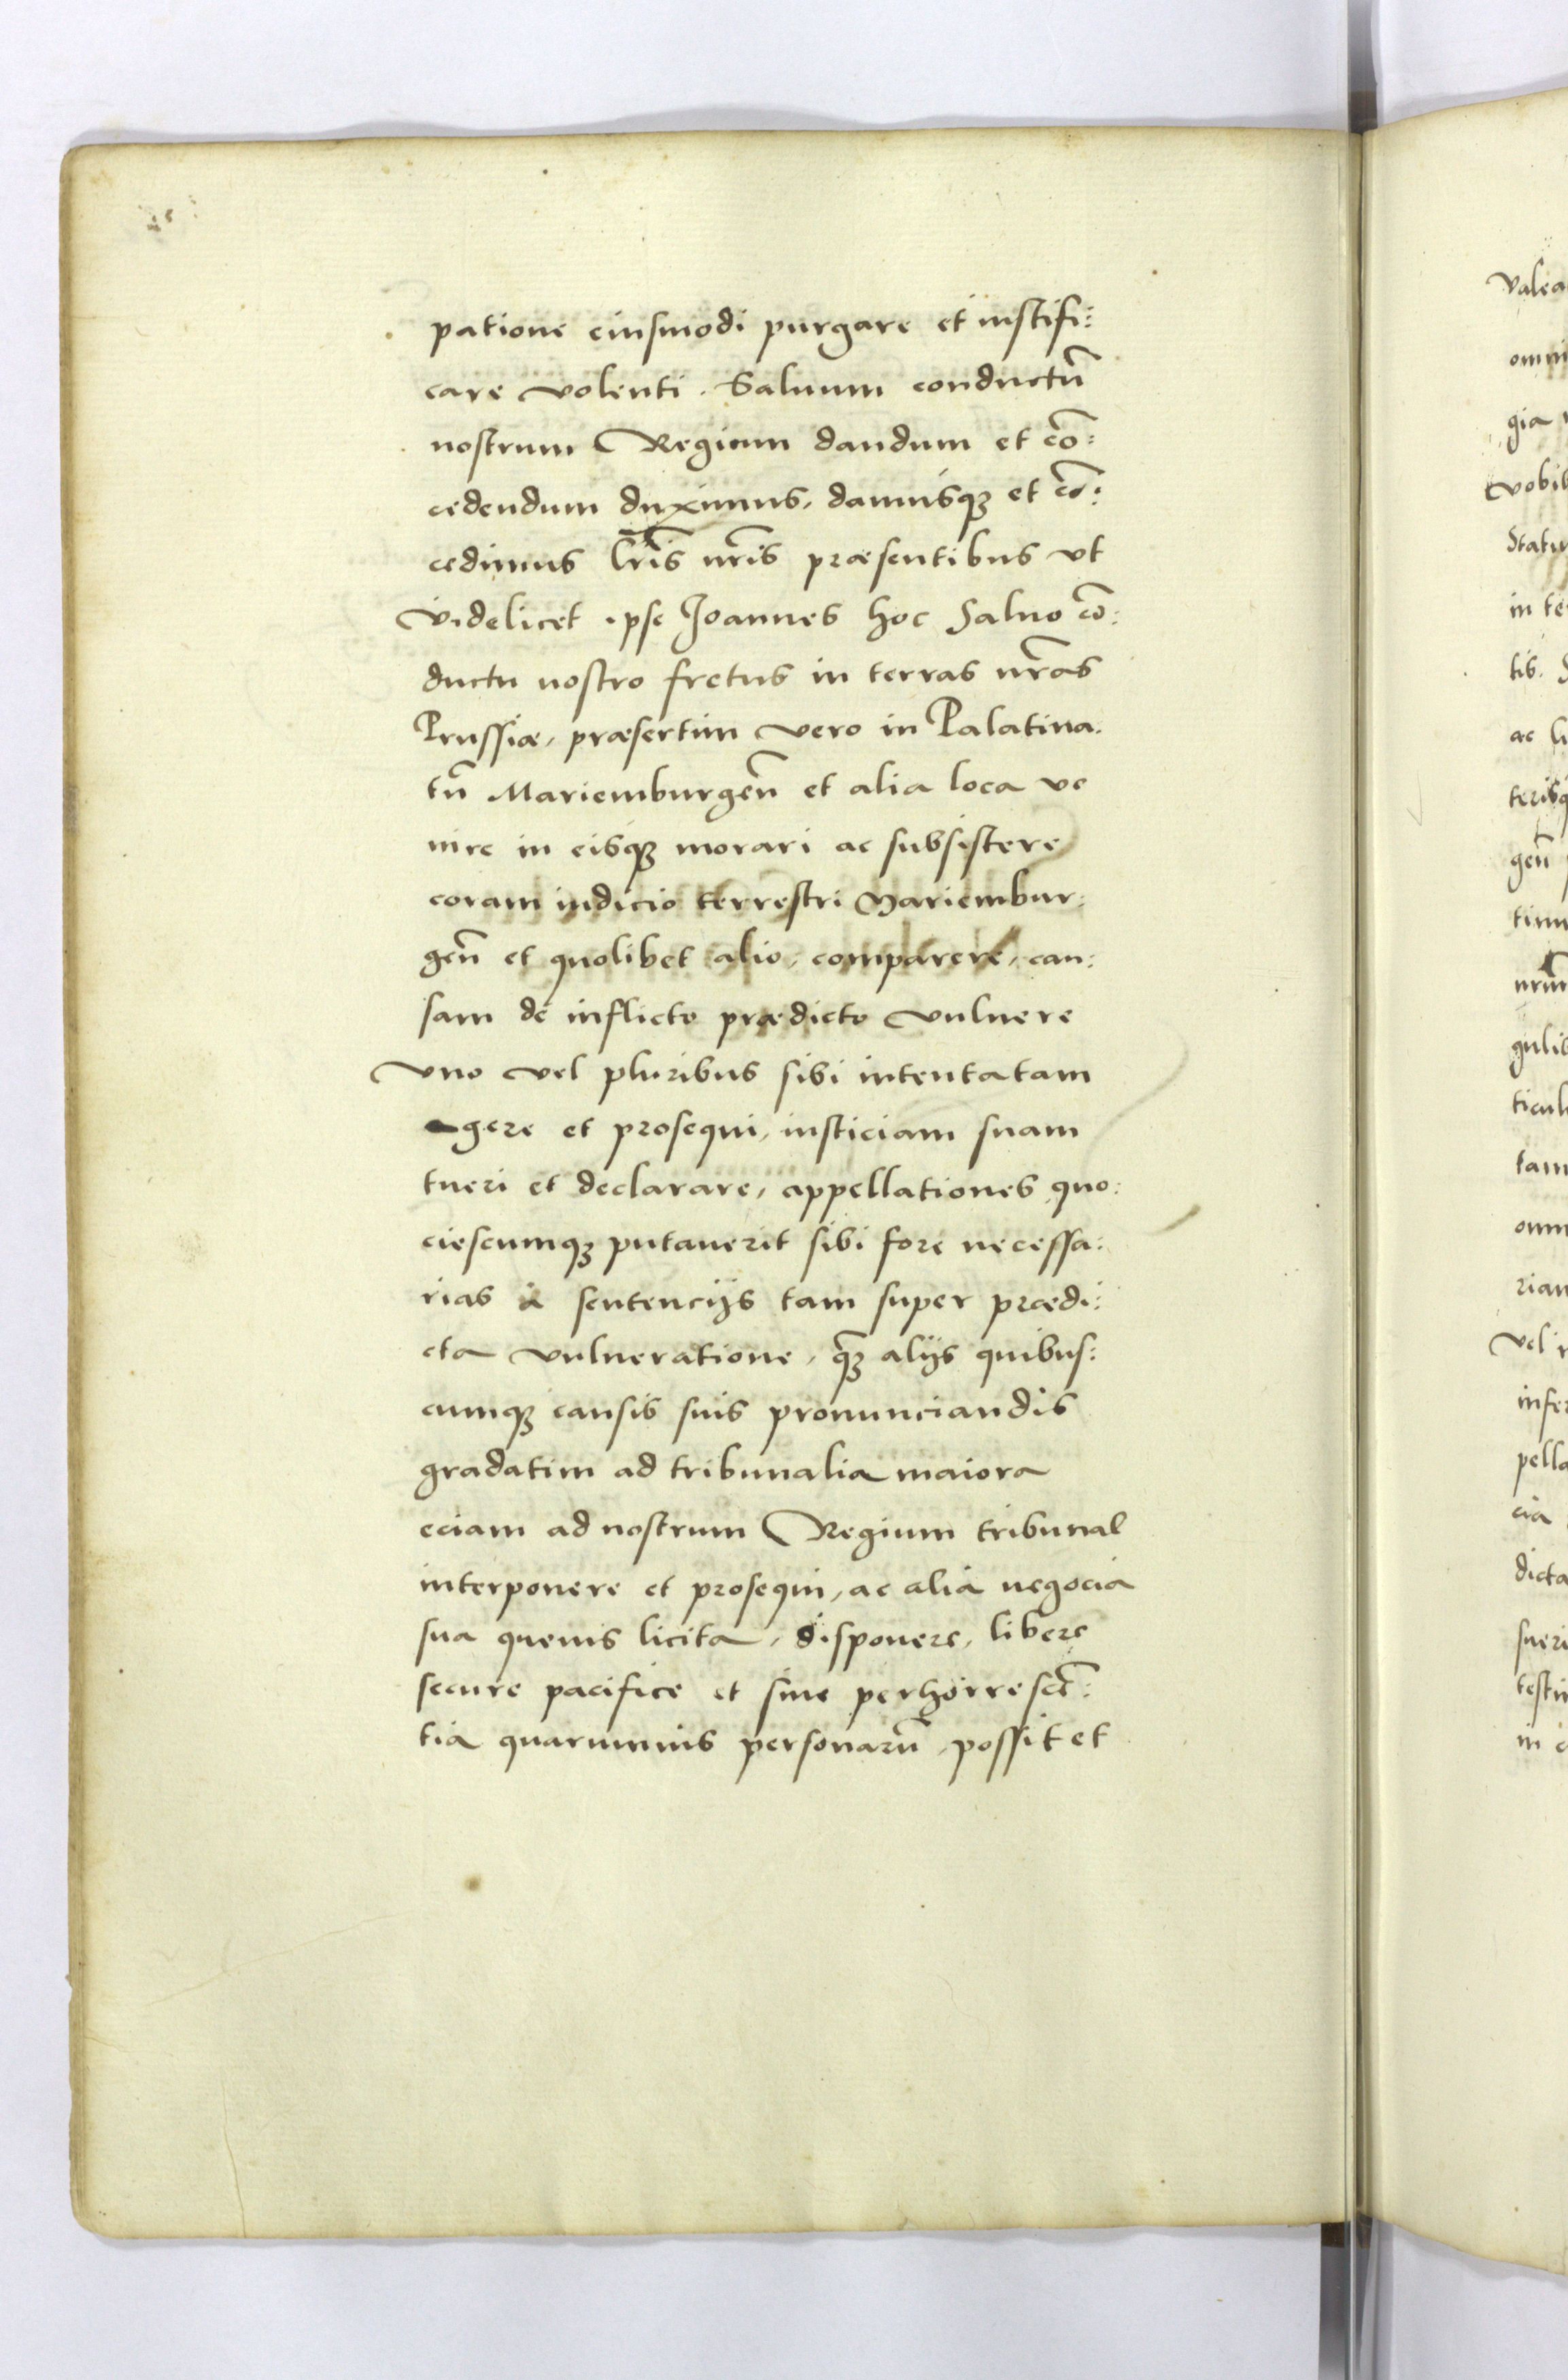 patione eiusmodi purgare et iustifi:
care volenti. Saluum conductũ
nostrum Regium dandum et cõ:
cedendum duximus, damusq3 et cõ:
cedimus lr̃is nr̃is præsentibus vt
videlicet ipse Joannes hoc Saluo cõ:
ductu nostro fretus in terras nr̃as
Prussiæ, præsertim vero in Palatina:
tũ Mariemburgeñ et alia loca ve
nire in eisq3 morari ac subsistere
coram iudicio terrestri Mariembur:
geñ et quolibet alio, comparere, cau:
sam de inflicto prædicto vulnere
vno vel pluribus sibi intentatam
agere et prosequi, iusticiam suam
tueri et declarare, appellationes quo:
ciescumq3 putauerit sibi fore necessa:
rias a sentencijs tam super prædi:
cta vulneratione, q̃3 alijs quibus:
cumq3 causis suis pronunciandis
gradatim ad tribunalia maiora
eciam ad nostrum Regium tribunal
interponere et prosequi, ac alia negocia
sua queuis licita, disponere, libere
secure pacifice et sine perhorrescẽ:
tia quarumuis personarũ, possit et
valea
omni
gia
vobi
Statu
in te
tis.
ac li
terisq
geñ
tinu
nrm̃
gulis
ticul
tam
omn
rian
vel i
infer
pella
cia
dicta
sueri
testi
in c